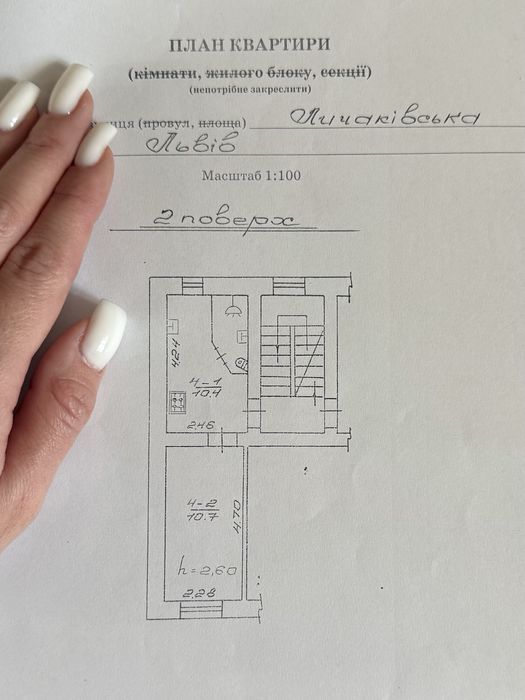 ПЛАН КВАРТИРИ
(кімнати, жилого блоку, секції)
(непотрібне закреслити)
иця (провул, площа) Личаківська
Львів
Масштаб 1:100
2 поверх
4-1
10.4
4.24
2.46
4-2
10.7
4.70
h=2,60
2.28